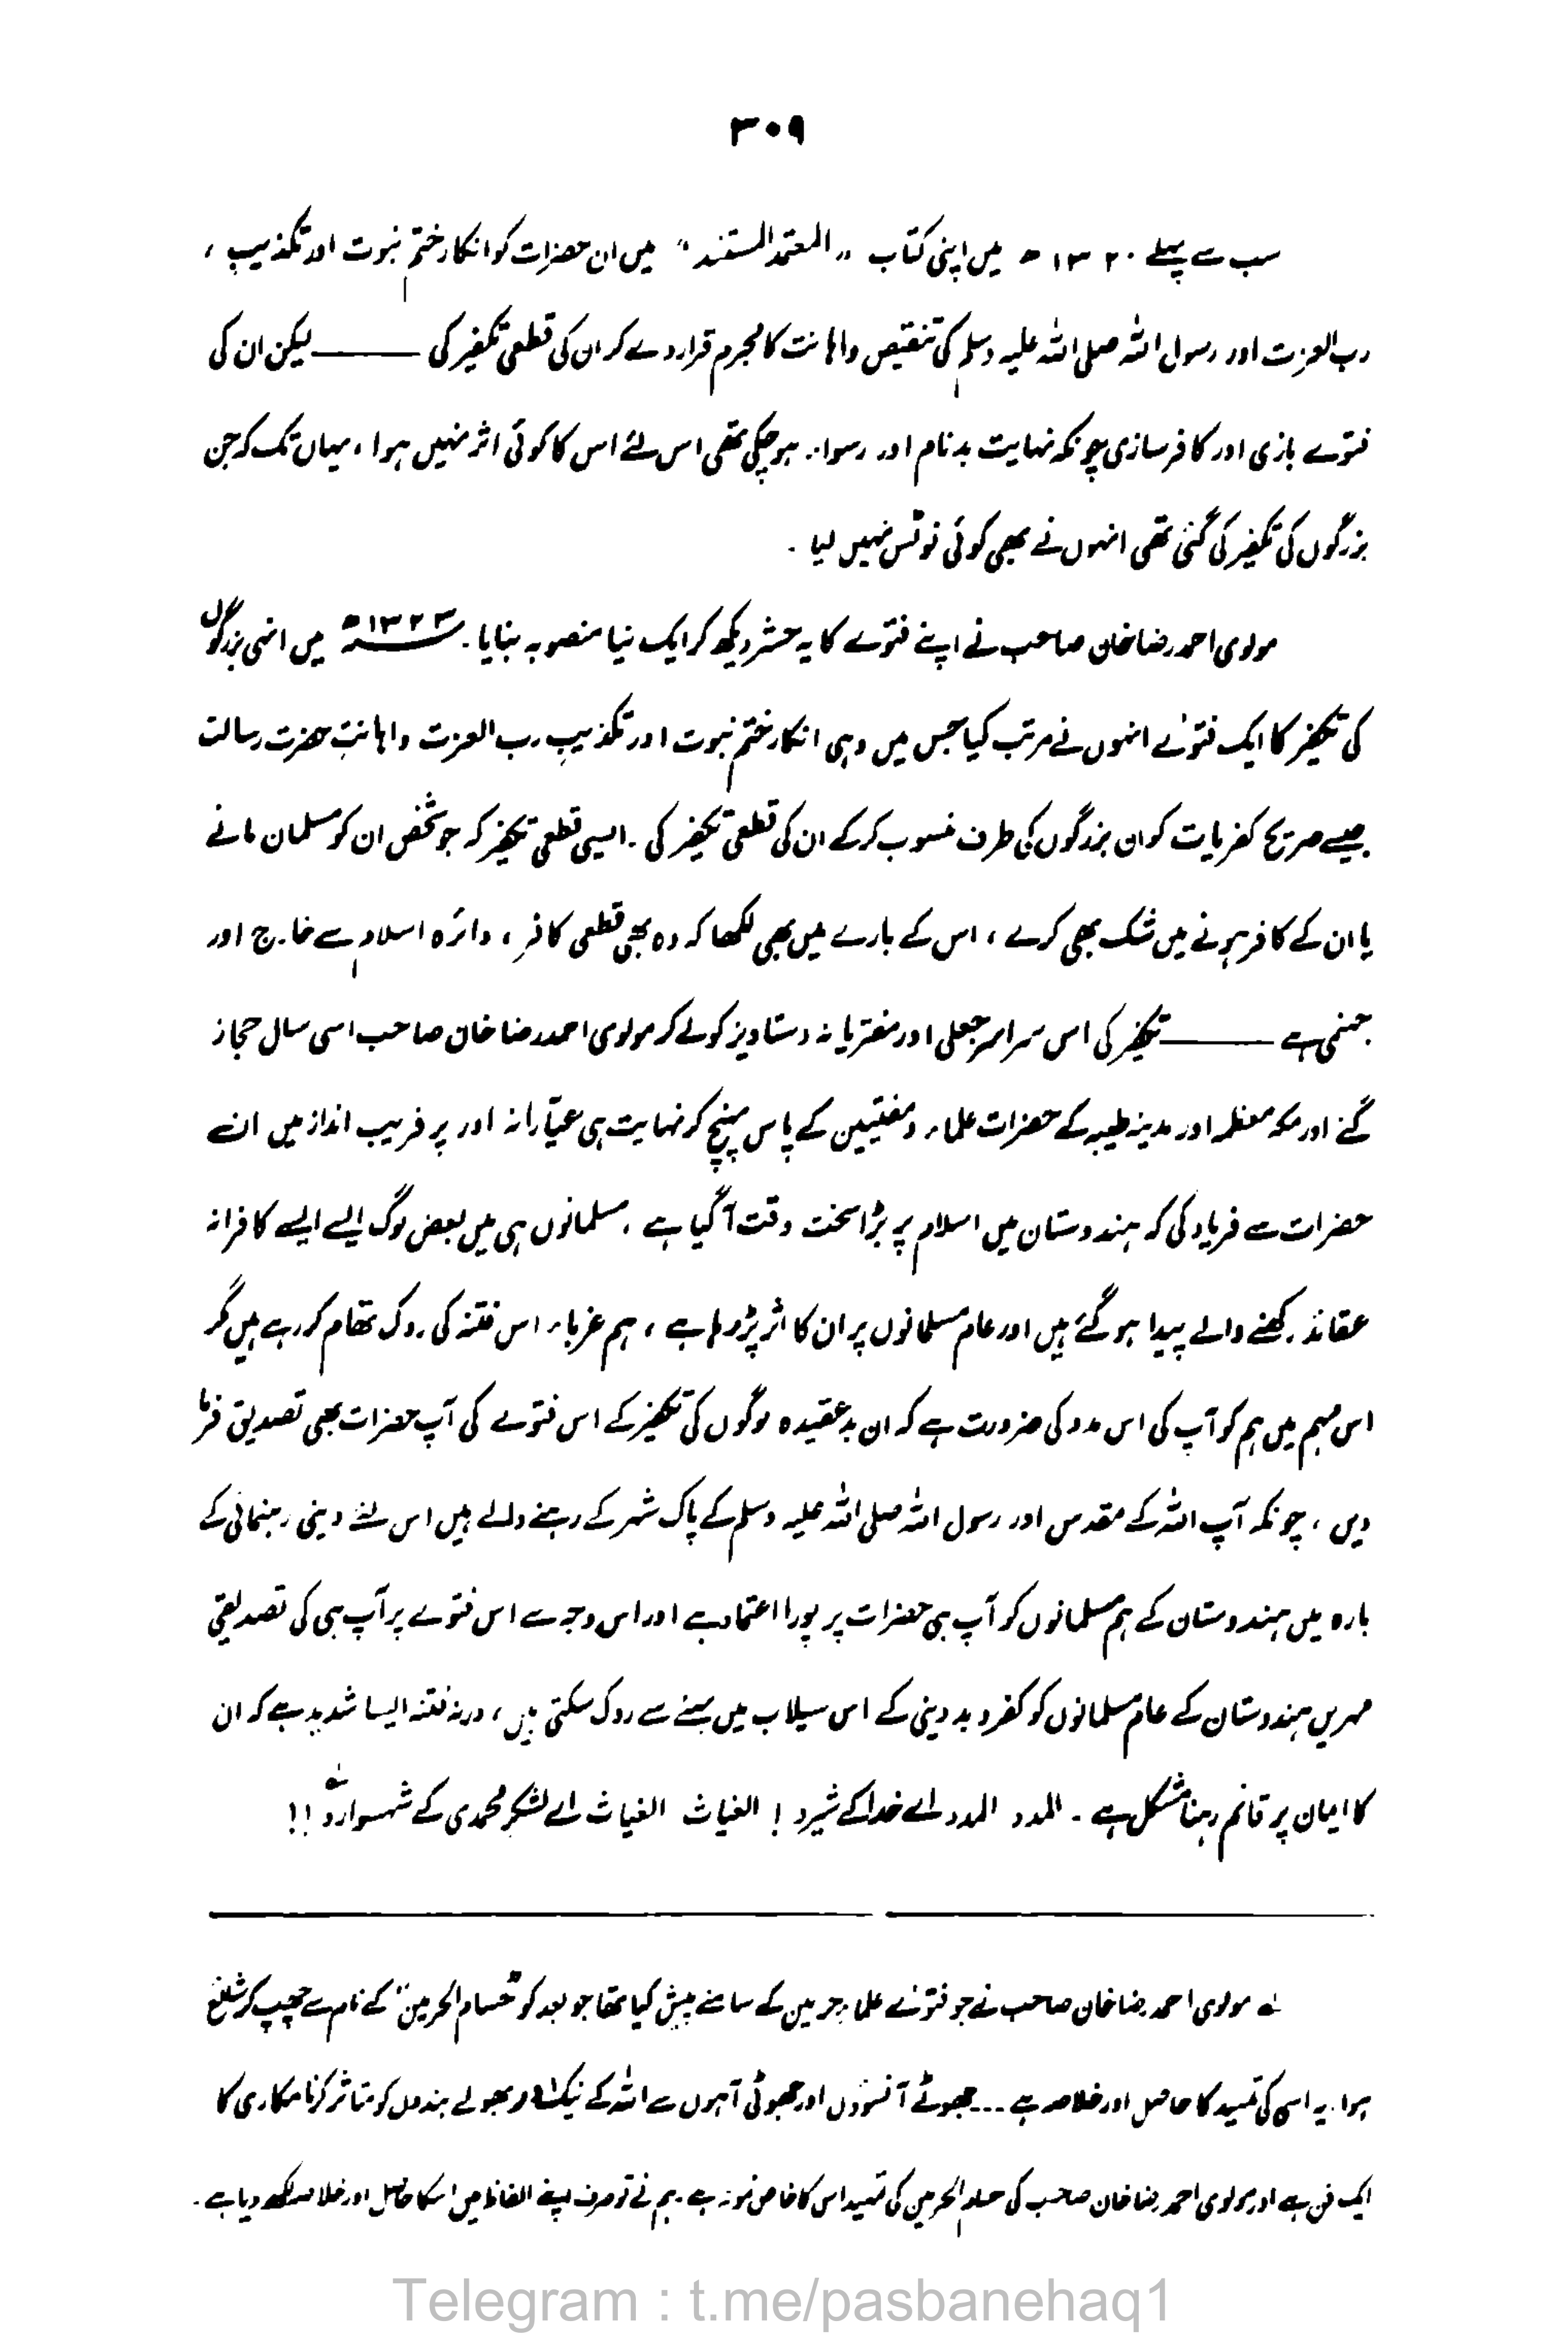 ۳۰۹
سب سے پہلے ۱۳۲۰ھ میں اپنی کتاب "المعتمد المستند" میں ان حضرات کو انکار ختمِ نبوت اور تکذیبِ،
رب العزت اور رسول اللہ صلی اللہ علیہ وسلم کی تنقیص واہانت کا مجرم قرار دے کر ان کی قطعی تکفیر کی ——— لیکن ان کی
فتوے بازی اور کافر سازی چونکہ نہایت بدنام اور رسوا۔ ہو چکی تھی اس لئے اس کا کوئی اثر نہیں ہوا، یہاں تک کہ جن
بزرگوں کی تکفیر کی گئی تھی انہوں نے بھی کوئی نوٹس نہیں لیا ۔
مولوی احمد رضا خان صاحب نے اپنے فتوے کا یہ حشر دیکھ کر ایک نیا منصوبہ بنایا۔ ۱۳۲۳ھ میں انہی بزرگوں
کی تکفیر کا ایک فتوےٰ انہوں نے مرتب کیا جس میں وہی انکار ختمِ نبوت اور تکذیبِ رب العزت واہانتِ حضرت رسالت
جیسے صریح کفریات کو ان بزرگوں کی طرف منسوب کرکے ان کی قطعی تکفیر کی ۔ ایسی قطعی تکفیر کہ جو شخص ان کو مسلمان مانے
یا ان کے کافر ہونے میں شک بھی کرے، اس کے بارے میں بھی لکھا کہ وہ بھی قطعی کافر، دائرہ اسلام سے خارج اور
جہنمی ہے ——— تکفیر کی اس سراسر جعلی اور مفتریانہ دستاویز کو لے کر مولوی احمد رضا خان صاحب اسی سال حجاز
گئے اور مکہ معظمہ اور مدینہ طیبہ کے حضرات علماء ومفتیین کے پاس پہنچ کر نہایت ہی عیّارانہ اور پر فریب انداز میں ان
حضرات سے فریاد کی کہ ہندوستان میں اسلام پر بڑا سخت وقت آگیا ہے، مسلمانوں ہی میں بعض لوگ ایسے ایسے کافرانہ
عقائد رکھنے والے پیدا ہو گئے ہیں اور عام مسلمانوں پر ان کا اثر پڑ رہا ہے، ہم غرباء اس فتنہ کی روک تھام کر رہے ہیں مگر
اس مہم میں ہم کو آپ کی اس مدد کی ضرورت ہے کہ ان بدعقیدہ لوگوں کی تکفیر کے اس فتوے کی آپ حضرات بھی تصدیق فرما
دیں، چونکہ آپ اللہ کے مقدس اور رسول اللہ صلی اللہ علیہ وسلم کے پاک شہر کے رہنے والے ہیں اس لئے دینی رہنمائی کے
بارہ میں ہندوستان کے ہم مسلمانوں کو آپ ہی حضرات پر پورا اعتماد ہے اور اس وجہ سے اس فتوے پر آپ ہی کی تصدیقی
مہریں ہندوستان کے عام مسلمانوں کو کفر و بد دینی کے اس سیلاب میں بہنے سے روک سکتی ہیں، ورنہ فتنہ ایسا شدید ہے کہ ان
کا ایمان پر قائم رہنا مشکل ہے ۔ المدد المدد اے خدا کے شیرو ! الغیاث الغیاث اے لشکرِ محمدی کے شہسوارو ؂۱ !!
؂۱ مولوی احمد رضا خان صاحب نے جو فتوےٰ علماء حرمین کے سامنے پیش کیا تھا جو بعد کو "حسام الحرمین" کے نام سے چھپ کر شائع
ہوا۔ یہ اسی کی تمہید کا حاصل اور خلاصہ ہے ... جھوٹے آنسوؤں اور جھوٹی آہوں سے اللہ کے نیک اور بھولے بندوں کو متاثر کرنا مکاری کا
ایک فن ہے اور مولوی احمد رضا خان صاحب کی حسام الحرمین کی تمہید اس کا خاص نمونہ ہے۔ ہم نے تو صرف اپنے الفاظ میں اسکا حاصل اور خلاصہ لکھ دیا ہے۔
Telegram : t.me/pasbanehaq1